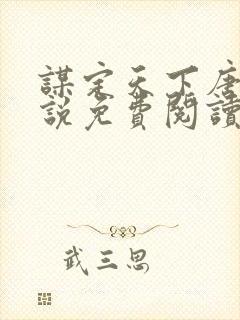 謀定天下唐
說免費閱讀
武三思